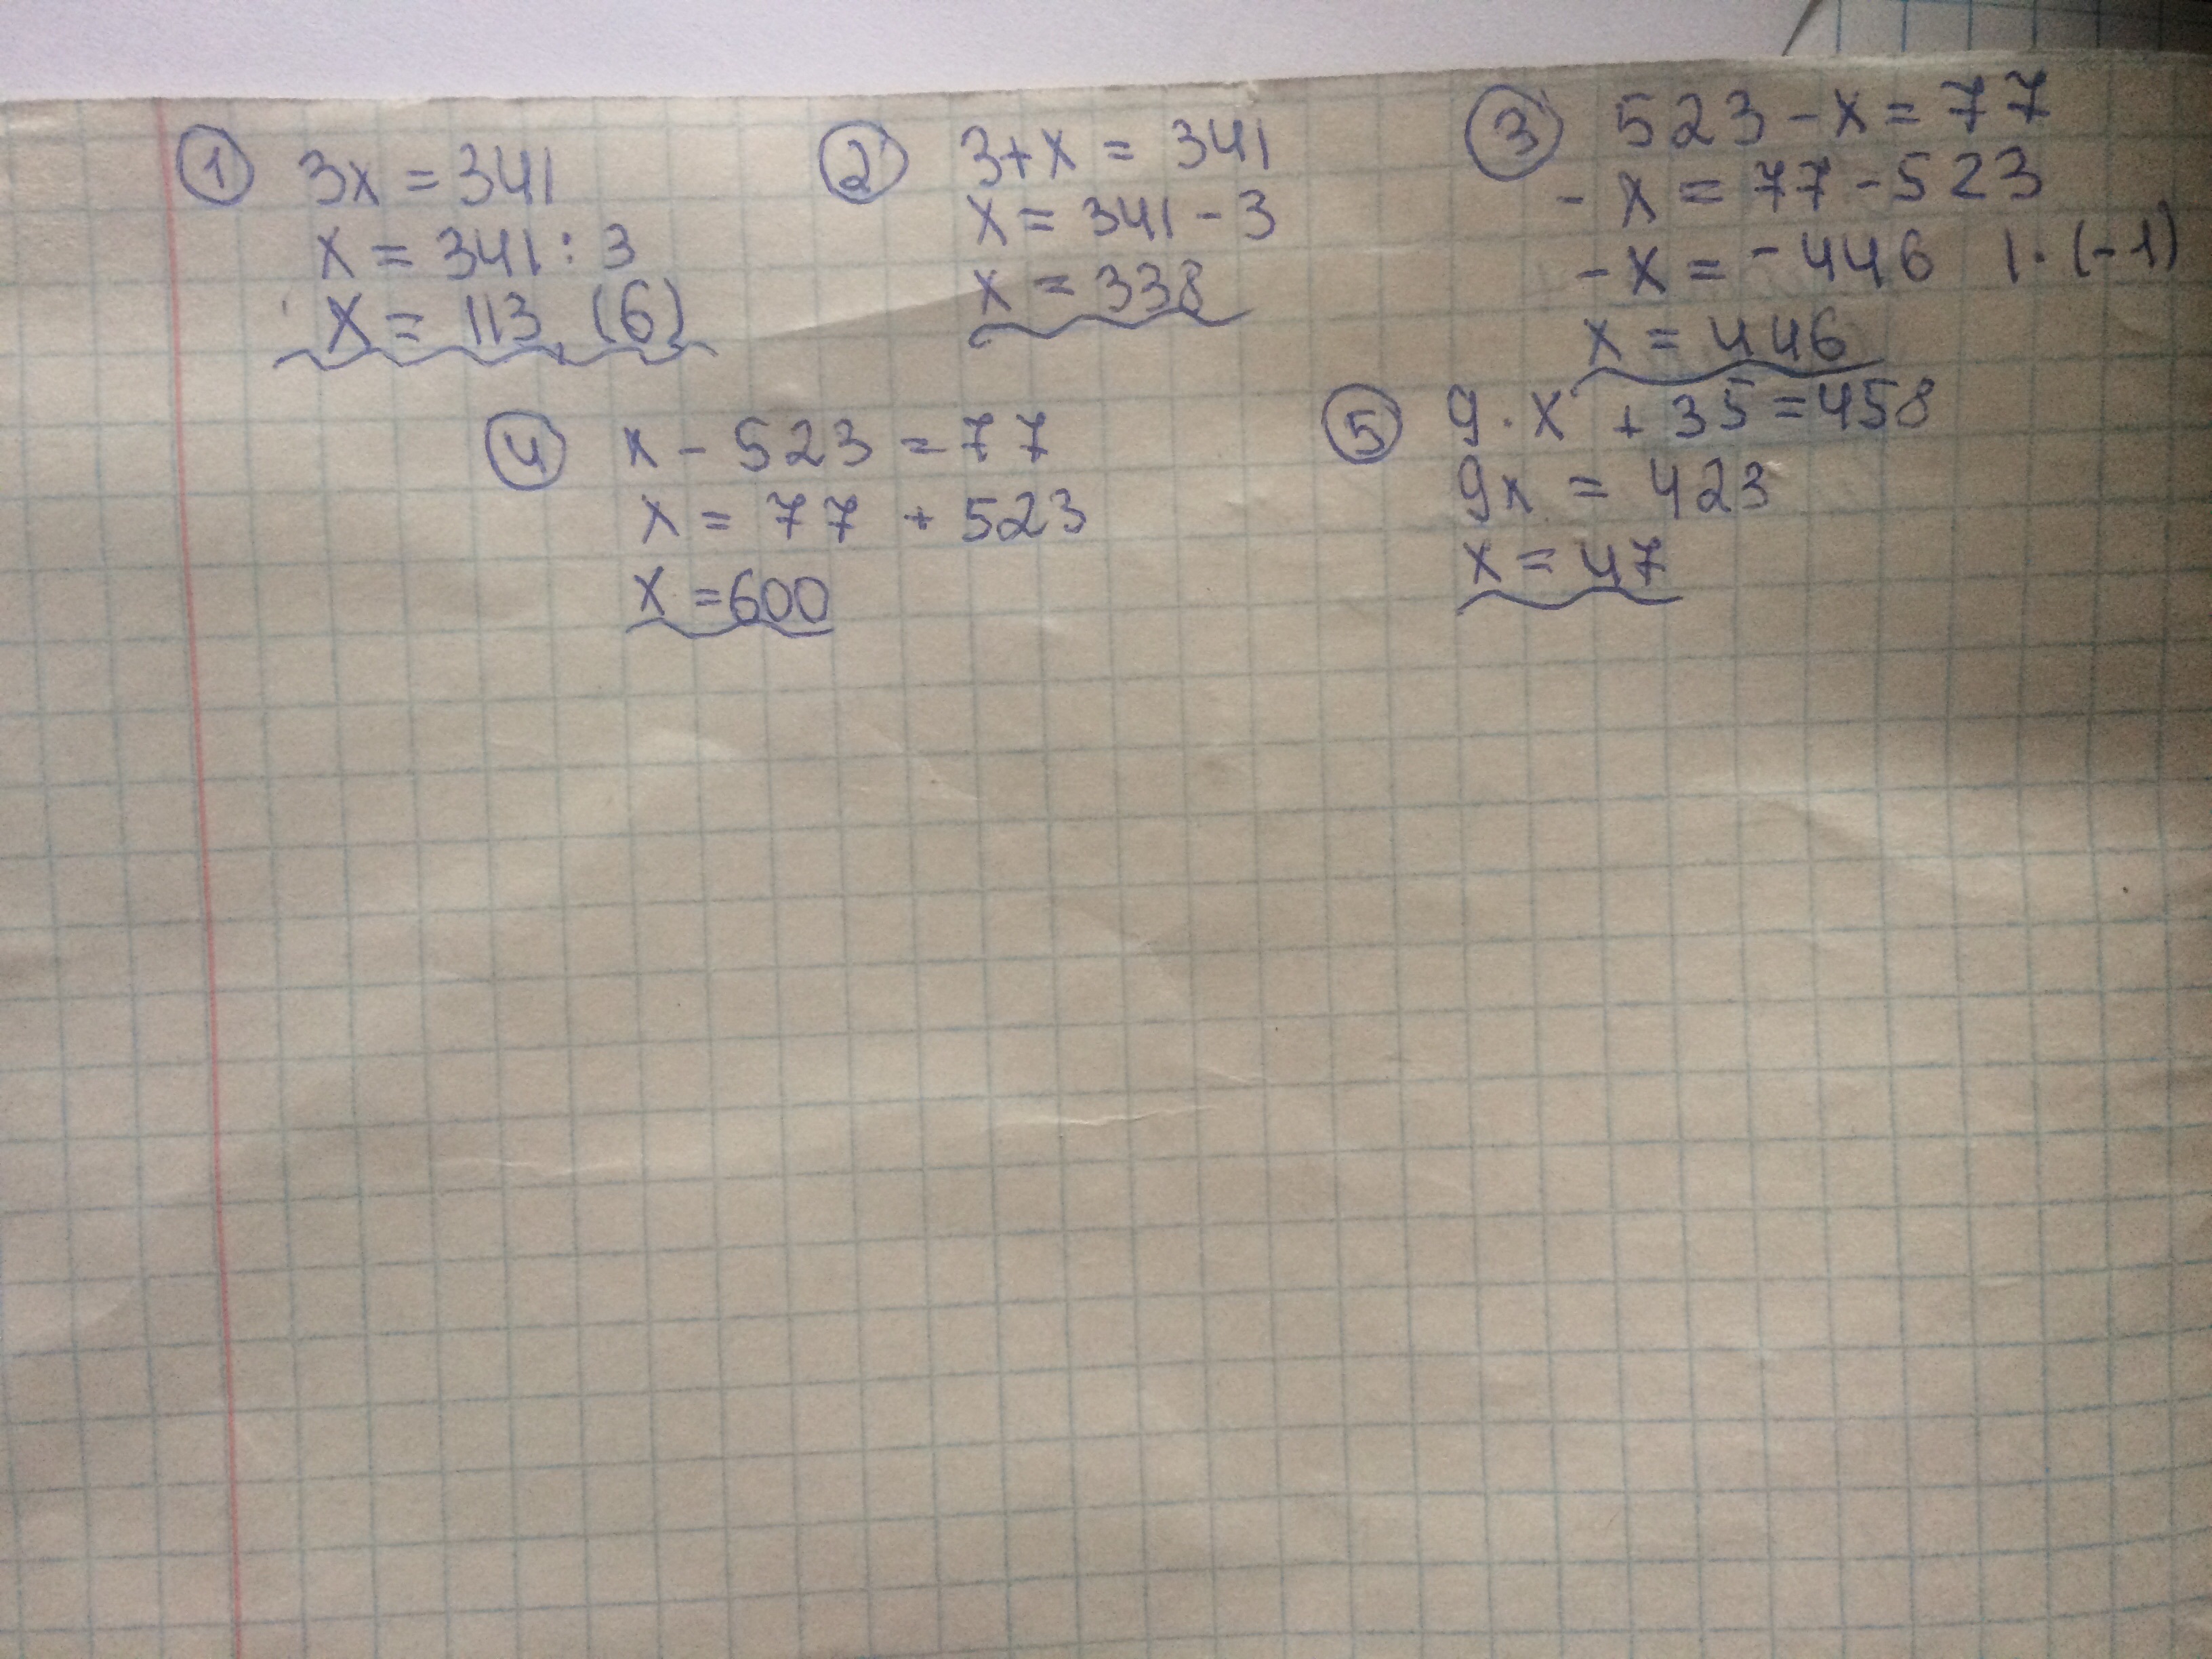 ① 3x = 341
x = 341 : 3
x = 113,(6)
② 3+x = 341
x = 341 - 3
x = 338
③ 523 - x = 77
- x = 77 - 523
- x = - 446 | · (-1)
x = 446
④ x - 523 = 77
x = 77 + 523
x = 600
⑤ 9 · x + 35 = 458
9x = 423
x = 47